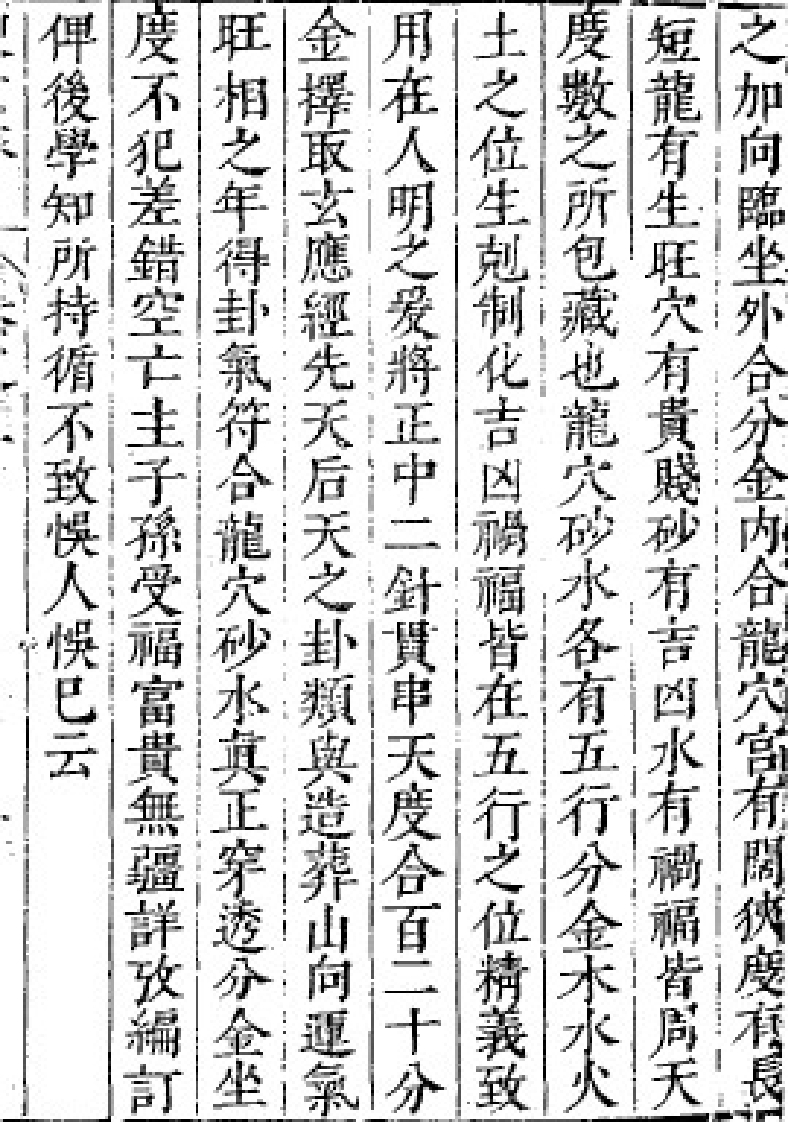 之加向臨坐外合分金内合龍穴宫有闊狹度有長
短龍有生旺穴有貴賤砂有吉凶水有禍福皆周天
度數之所包藏也龍穴砂水各有五行分金木水火
土之位生剋制化吉凶禍福皆在五行之位精義致
用在人明之爰將正中二針貫串天度合百二十分
金擇取玄應經先天后天之卦類與造葬山向運氣
旺相之年得卦氣符合龍穴砂水真正穿透分金坐
度不犯差錯空亡主子孫受福富貴無疆詳攷編訂
俾後學知所持循不致悞人悞巳云